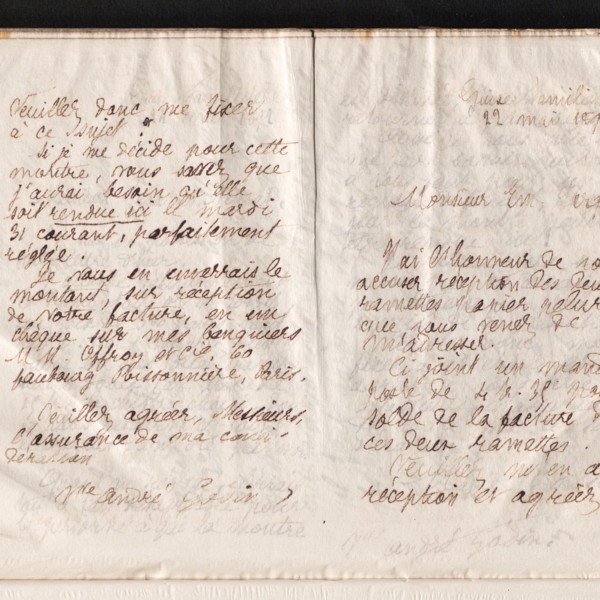 Veuillez donc me fixer
à ce sujet.
Si je me décide pour cette
montre, vous savez que
j'aurai besoin qu'elle
soit rendue ici le mardi
31 courant, parfaitement
réglée.
Je vous en enverrais le
montant, sur réception
de votre facture, en un
chèque sur mes banquiers
M.M. Offroy et Cie, 60
faubourg Poissonnière, Paris.
Veuillez agréer, Messieurs,
l'assurance de ma consi-
dération
Vve André Godin
Guise Famili
22 mai 189
Monsieur Em.
J'ai l'honneur de vo
accuser réception des deu
ramettes papier pelur
que vous venez de
m'adresser.
Ci joint un manda
poste de 4 fr. 35 po
solde de la facture d
ces deux ramettes.
Veuillez m'en a
réception et agréer